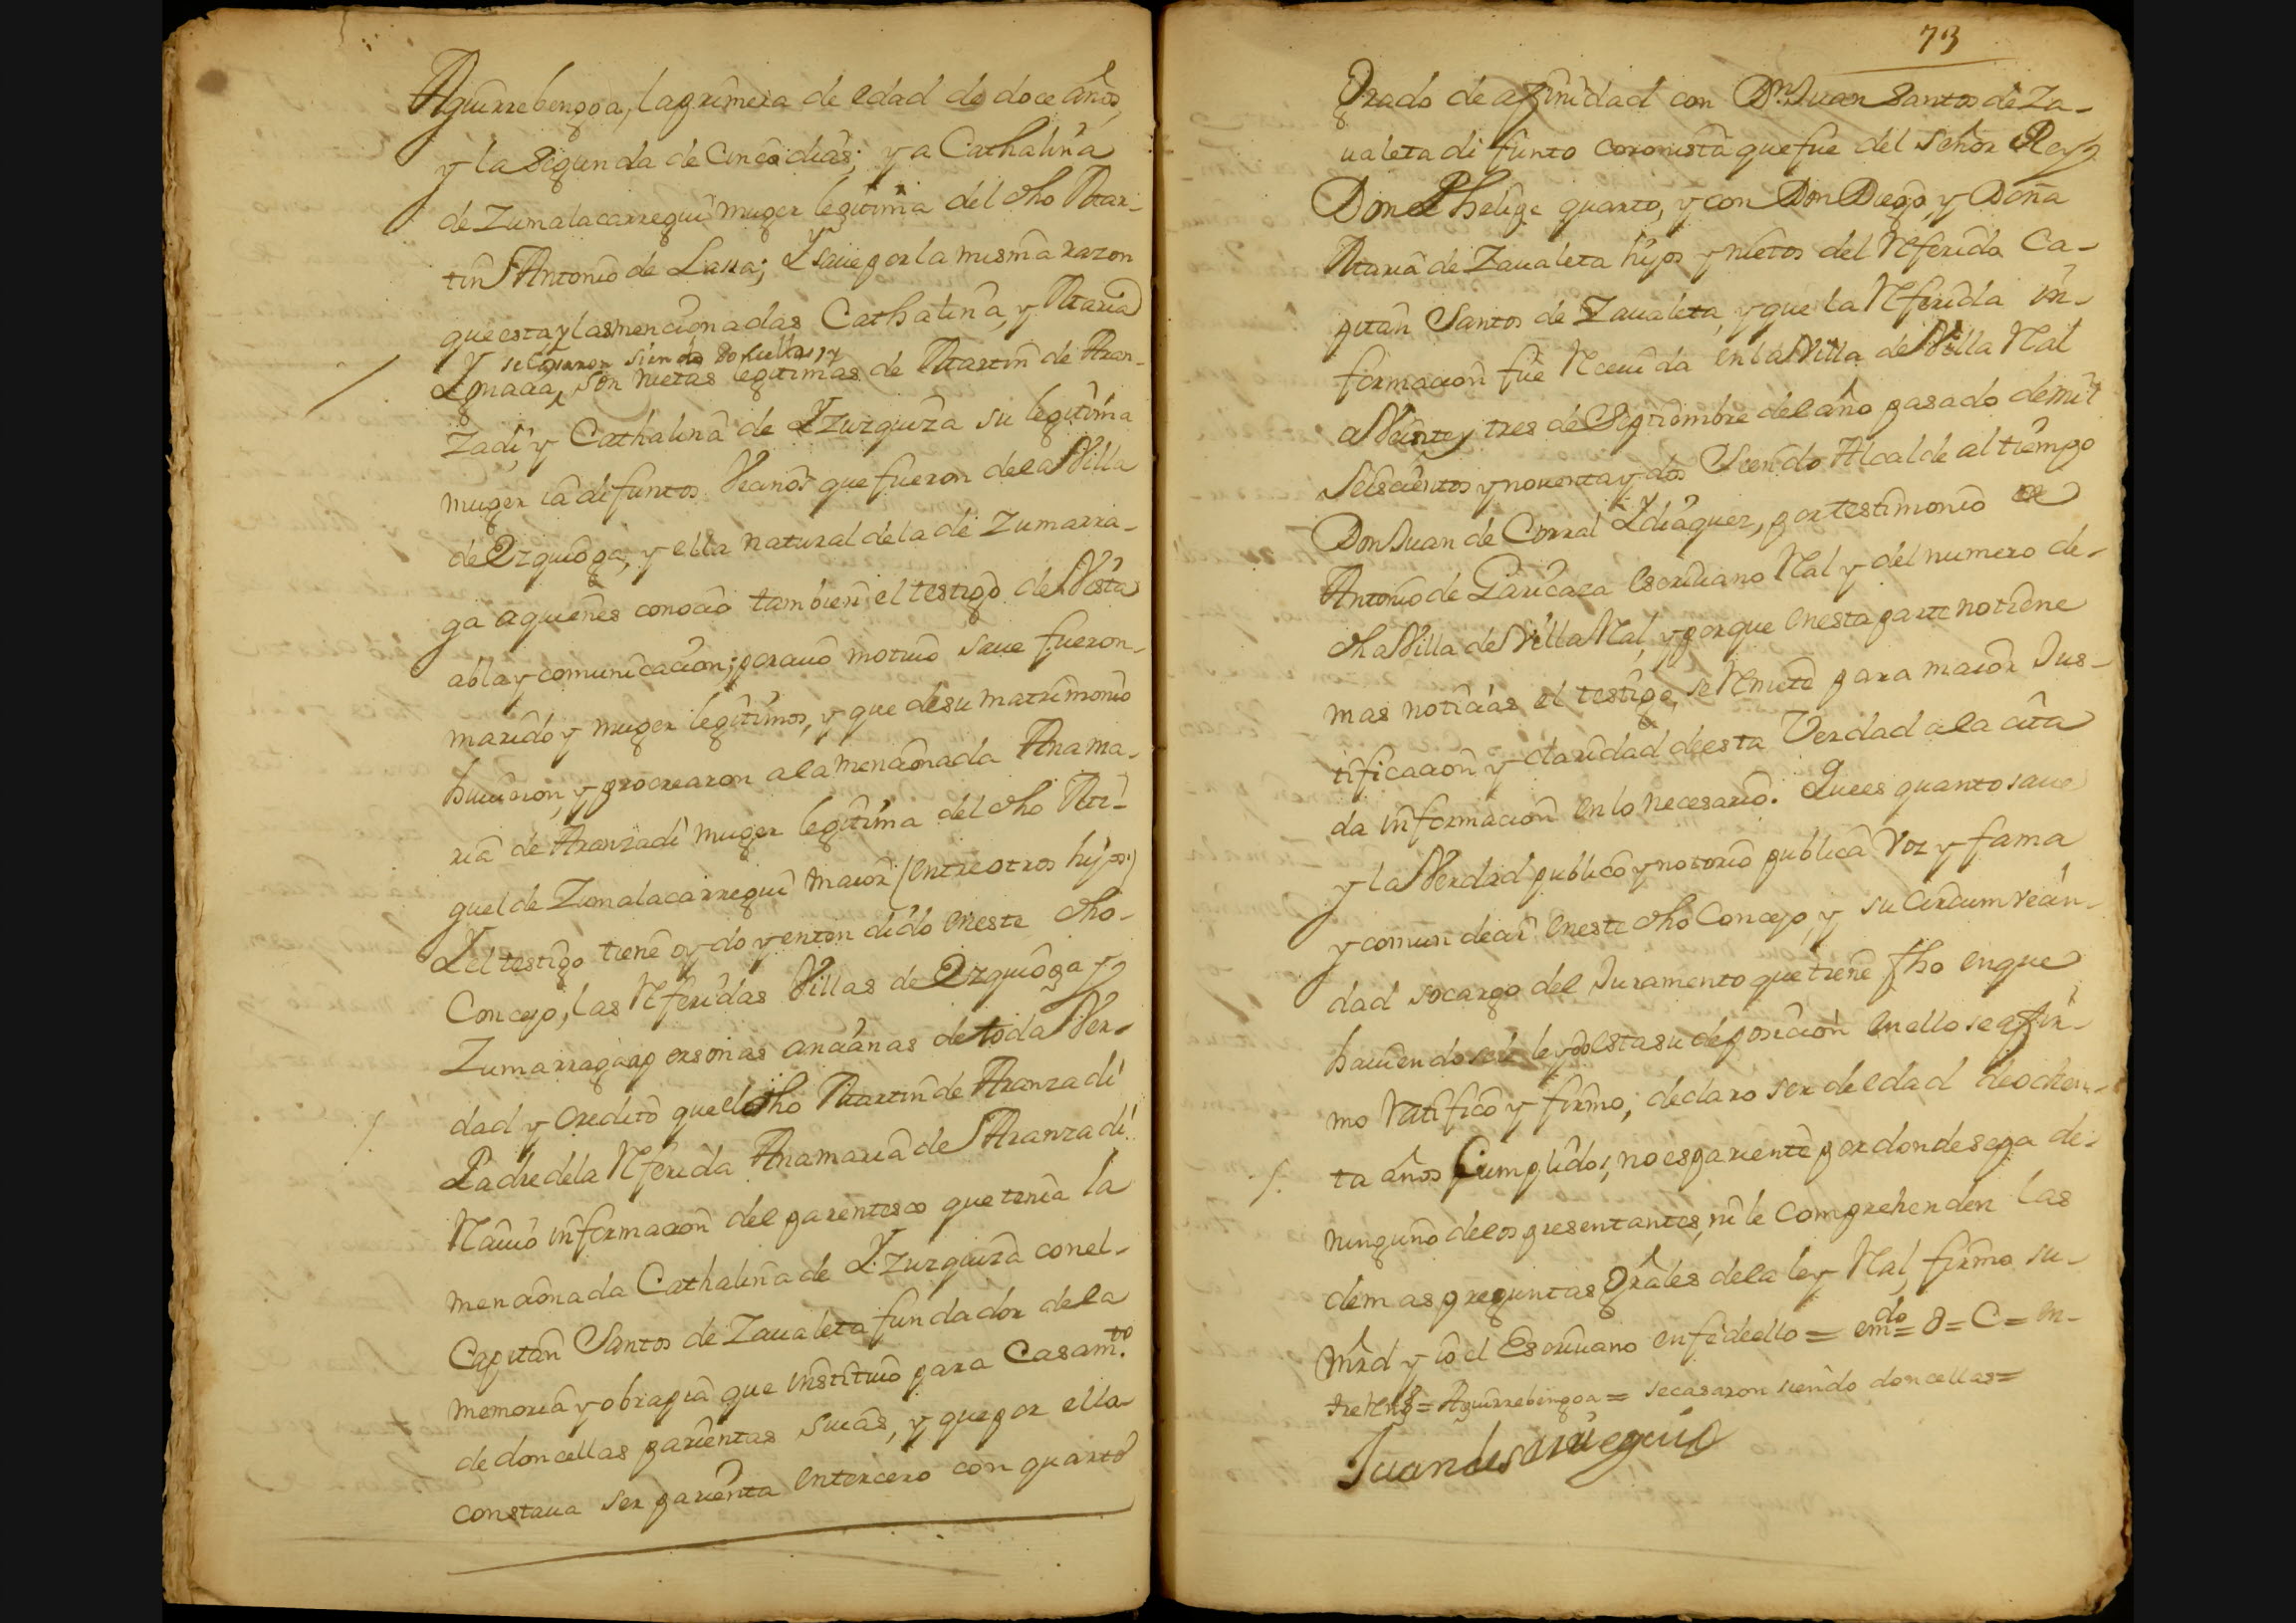 Aguirrebengoa, la primera de edad de doce años,
y la Segunda de Cinco dias; y a Cathalina
de Zumalacarregui muger legitima del dho Mar-
tin Antonio de Lassa; Y saue por la misma razon
que esta y las mencionadas Cathalina, y Maria
Y se Casaron siendo Doncellas, y
Ygnacia, son nietas legitimas de Martin de Aran-
zadi, y Cathalina de Yzurquiza su legitima
muger ia difuntos Vecinos que fueron de la Villa
de Ezquioga, y ella natural de la de Zumarra-
ga a quienes conocio tambien el testigo de Vista
abla y comunicacion; por cuio motiuo saue fueron
marido y muger legitimos, y que de su matrimonio
huuieron, y procrearon a la mencionada Ana ma-
ria de Aranzadi muger legitima del dho Mi-
guel de Zumalacarregui maior (entre otros hijos)
Y el testigo tiene oydo y entendido en este dho
Concejo, las Referidas Villas de Ezquioga y
Zumarraga a personas ancianas de toda Ver-
dad y credito que el dho Martin de Aranzadi
Padre de la Referida Ana maria de Aranzadi
Reciuio informacion del parentesco que tenia la
mencionada Cathalina de Yzurquiza con el
Capitan Santos de Zaualeta fundador de la
memoria y obra pia que instituio para Casamto
de doncellas parientas suias, y que por ella
constaua ser parienta en tercero con quarto
73
Grado de afinidad con Dn Juan Santos de Za-
ualeta difunto coronista que fue del Señor Rey
Don Phelipe quarto, y con Don Diego, y Doña
Maria de Zaualeta hijos y nietos del Referido Ca-
pitan Santos de Zaualeta, y que la Referida in-
formacion fue Receuida en la Villa de Villa Ral
a Veinte y tres de Septiembre del año pasado de mil
seiscientos y nouenta y dos Siendo Alcalde al tiempo
Don Juan de Corral Ydiaquez, por testimonio de
Antonio de Garicaza escriuano Ral y del numero de
dha Villa de Villa Ral, y porque en esta parte no tiene
mas noticias el testigo, se Remite para maior Jus-
tificacion y claridad de esta Verdad a la cita
da informacion en lo necesario. Que es quanto saue
y la Verdad publico y notorio publica voz y fama
y comun decir en este dho Concejo, y su circumvecin-
dad socargo del Juramento que tiene fho en que
hauiendosele leydo esta su deposicion en ello se afir-
mo ratifico y firmo; declaro ser de edad de ochen-
ta años Cumplidos, no es pariente por donde sepa de
ninguno de los presentantes, ni le comprehenden las
demas preguntas Grâles de la ley Ral, firmo su
mrd y io el Escriuano en fe de ello = emdo = o = C = en-
tre Rens = Aguirrebengoa = se casaron siendo doncellas =